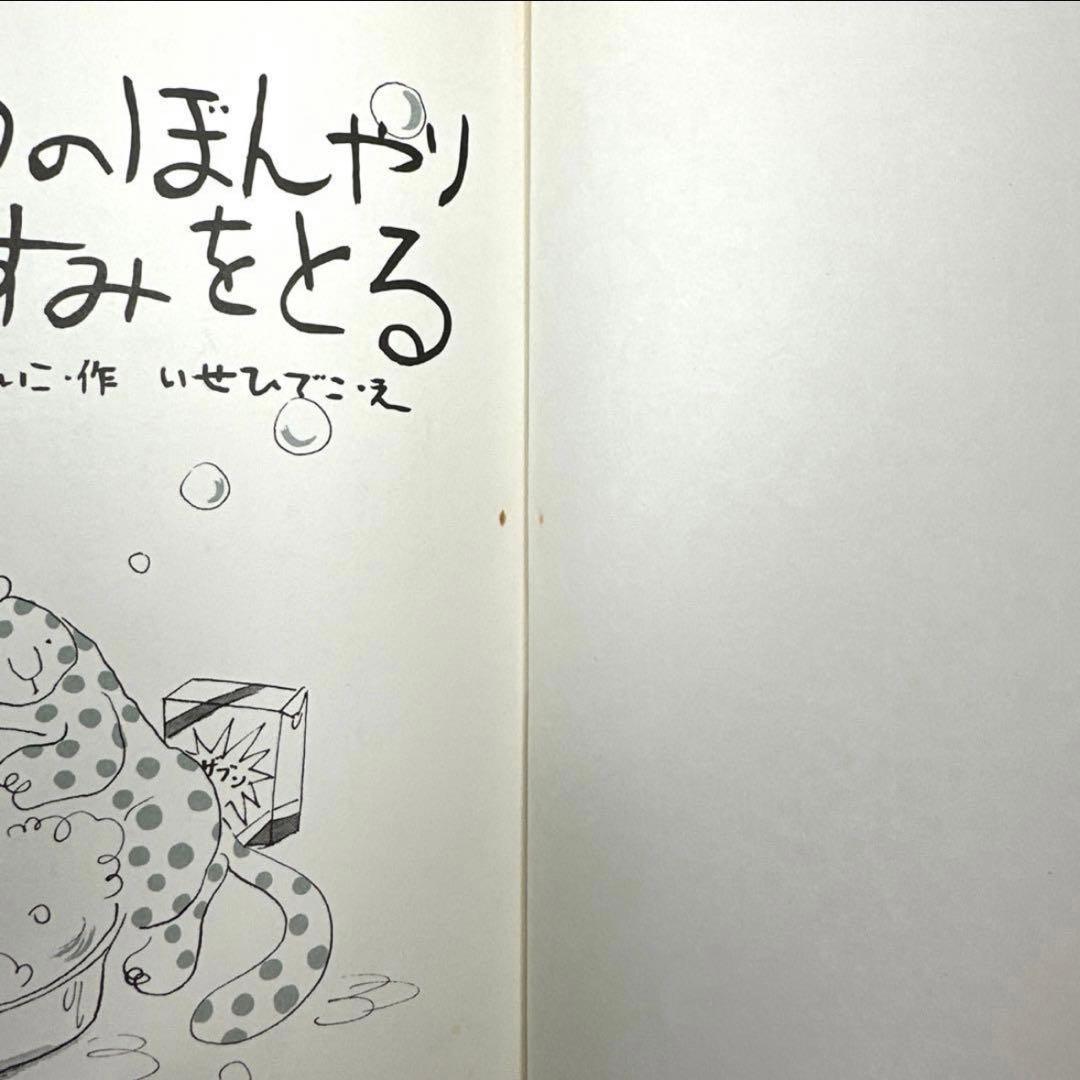 のぼんやり
すみをとる
いこ・作 いせひでこ・え
ザブン